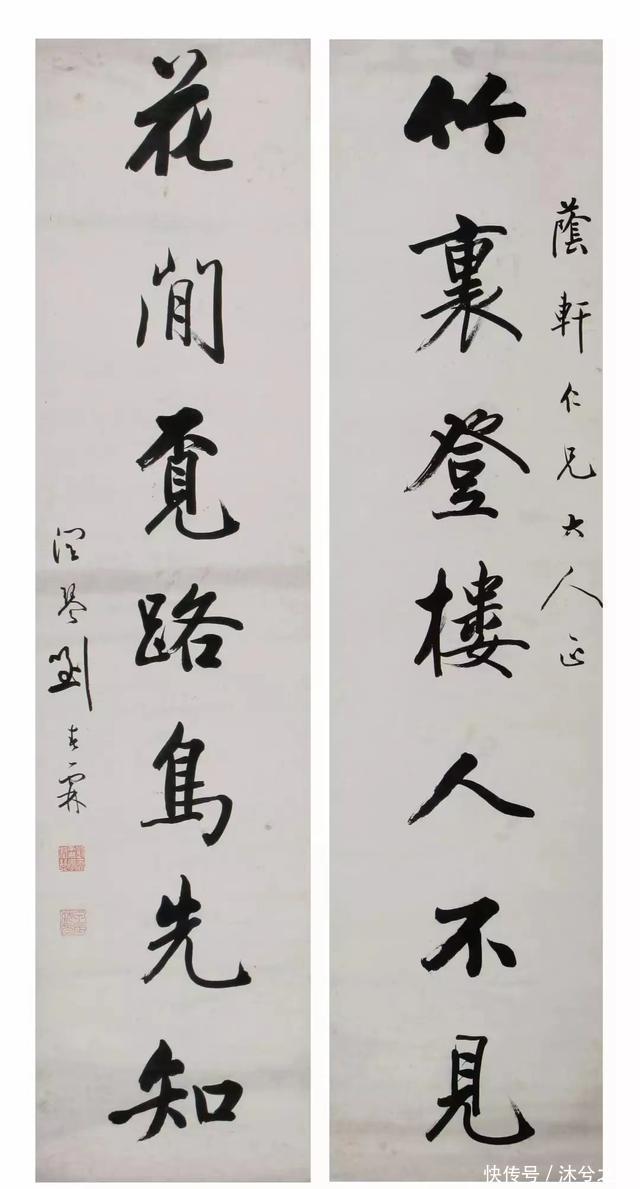 蔭軒仁兄大人正
竹裏登樓人不見
花閒覓路鳥先知
潤琴劉春霖
快传号 / 沐兮